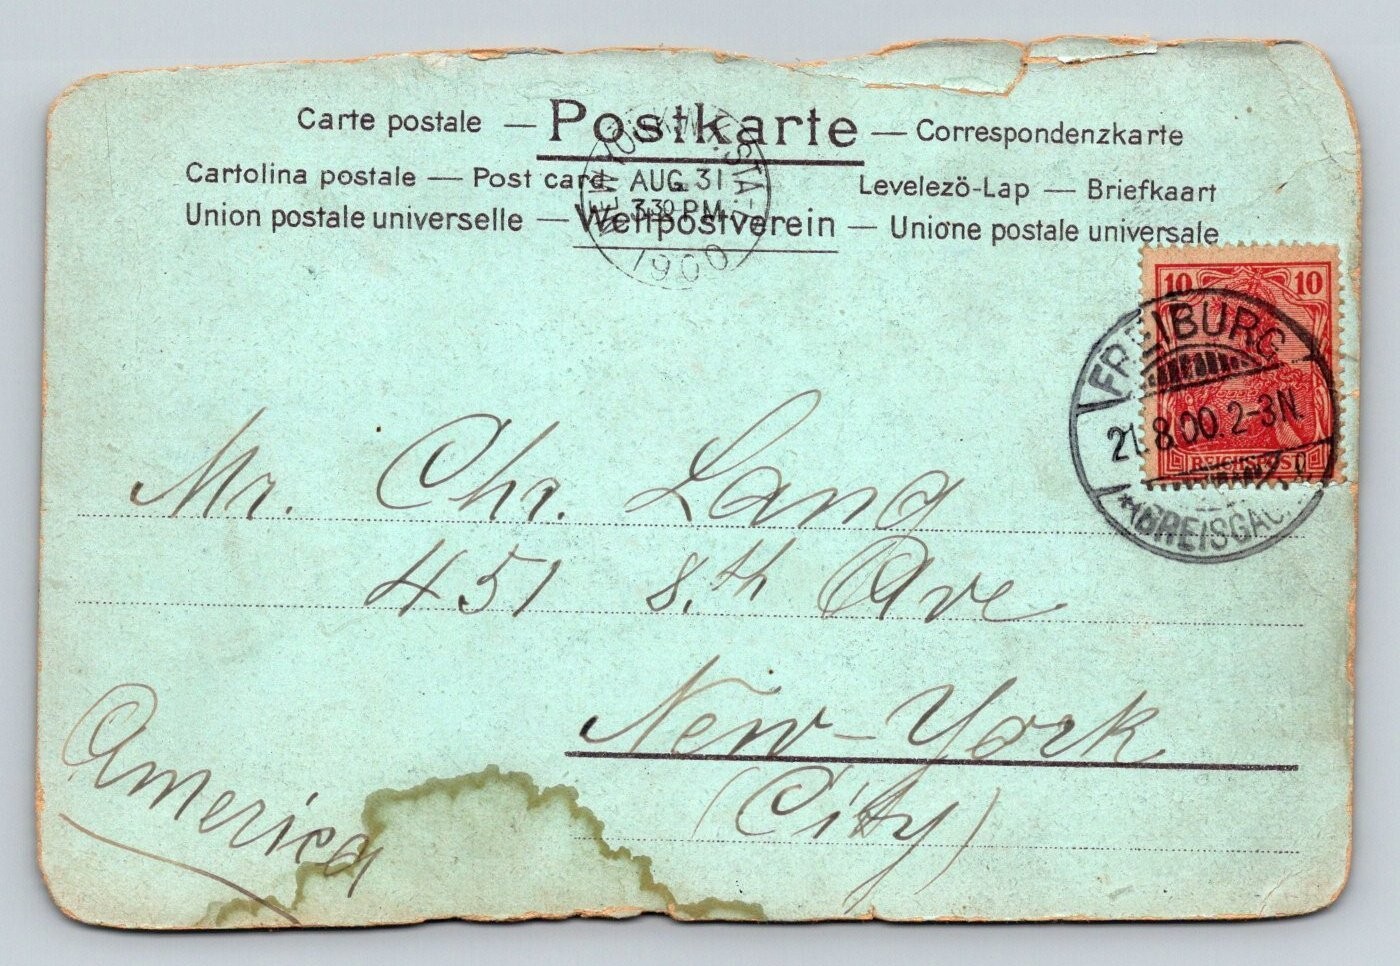 Carte postale — Postkarte — Correspondenzkarte
Cartolina postale — Post card Levelező-Lap — Briefkaart
Union postale universelle — Weltpostverein — Unione postale universale
NEW YORK, N.Y. STA.
AUG. 31
3-30 P.M.
1900
10 10
REICHSPOST
FREIBURG
21.8.00. 2-3N.
* (BREISGAU)
Mr. Chr. Lang
451 8.th Ave
New-York
(City)
America